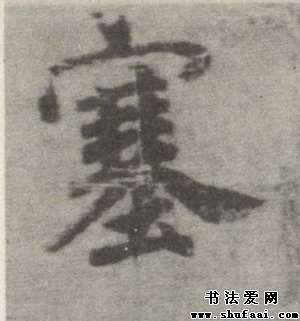 塞
书法爱网
www.shufaai.com